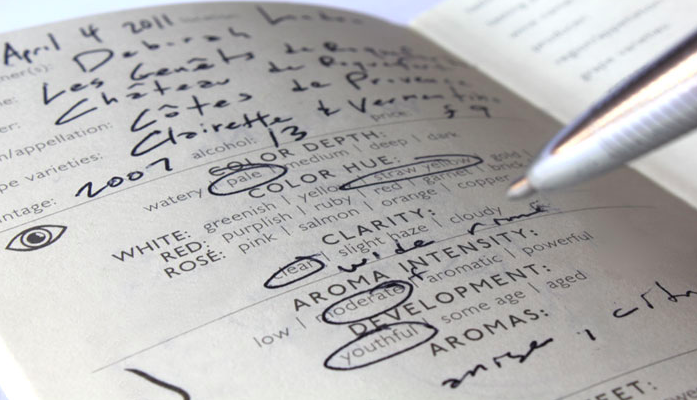 April 4 2011 location: London
ner(s): Deborah
Les Genêts de Roquefort
er: Château de Roquefort
n/appellation: Côtes de Provence
pe varieties: Clairette & Vermentino
ntage: 2007 alcohol: 13 price: 9
COLOR DEPTH:
watery | pale | medium | deep | dark
COLOR HUE:
WHITE: greenish | yellow | straw yellow | gold
RED: purplish | ruby | red | garnet | brick
ROSÉ: pink | salmon | orange | copper
CLARITY:
clear | slight haze | cloudy
wide
AROMA INTENSITY:
low | moderate | aromatic | powerful
DEVELOPMENT:
youthful | some age | aged
AROMAS:
anise, citrus
EET: